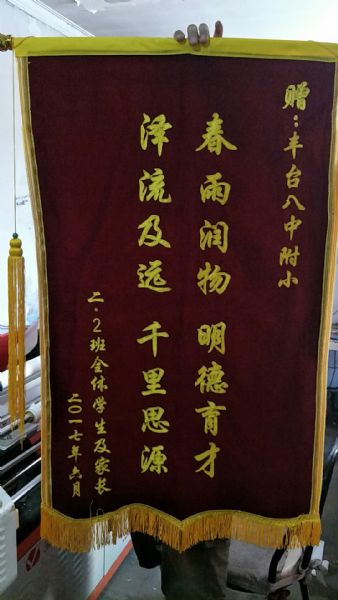 赠：丰台八中附小
春雨润物 明德育才
泽流及远 千里思源
二·2班全体学生及家长
二〇一七年六月